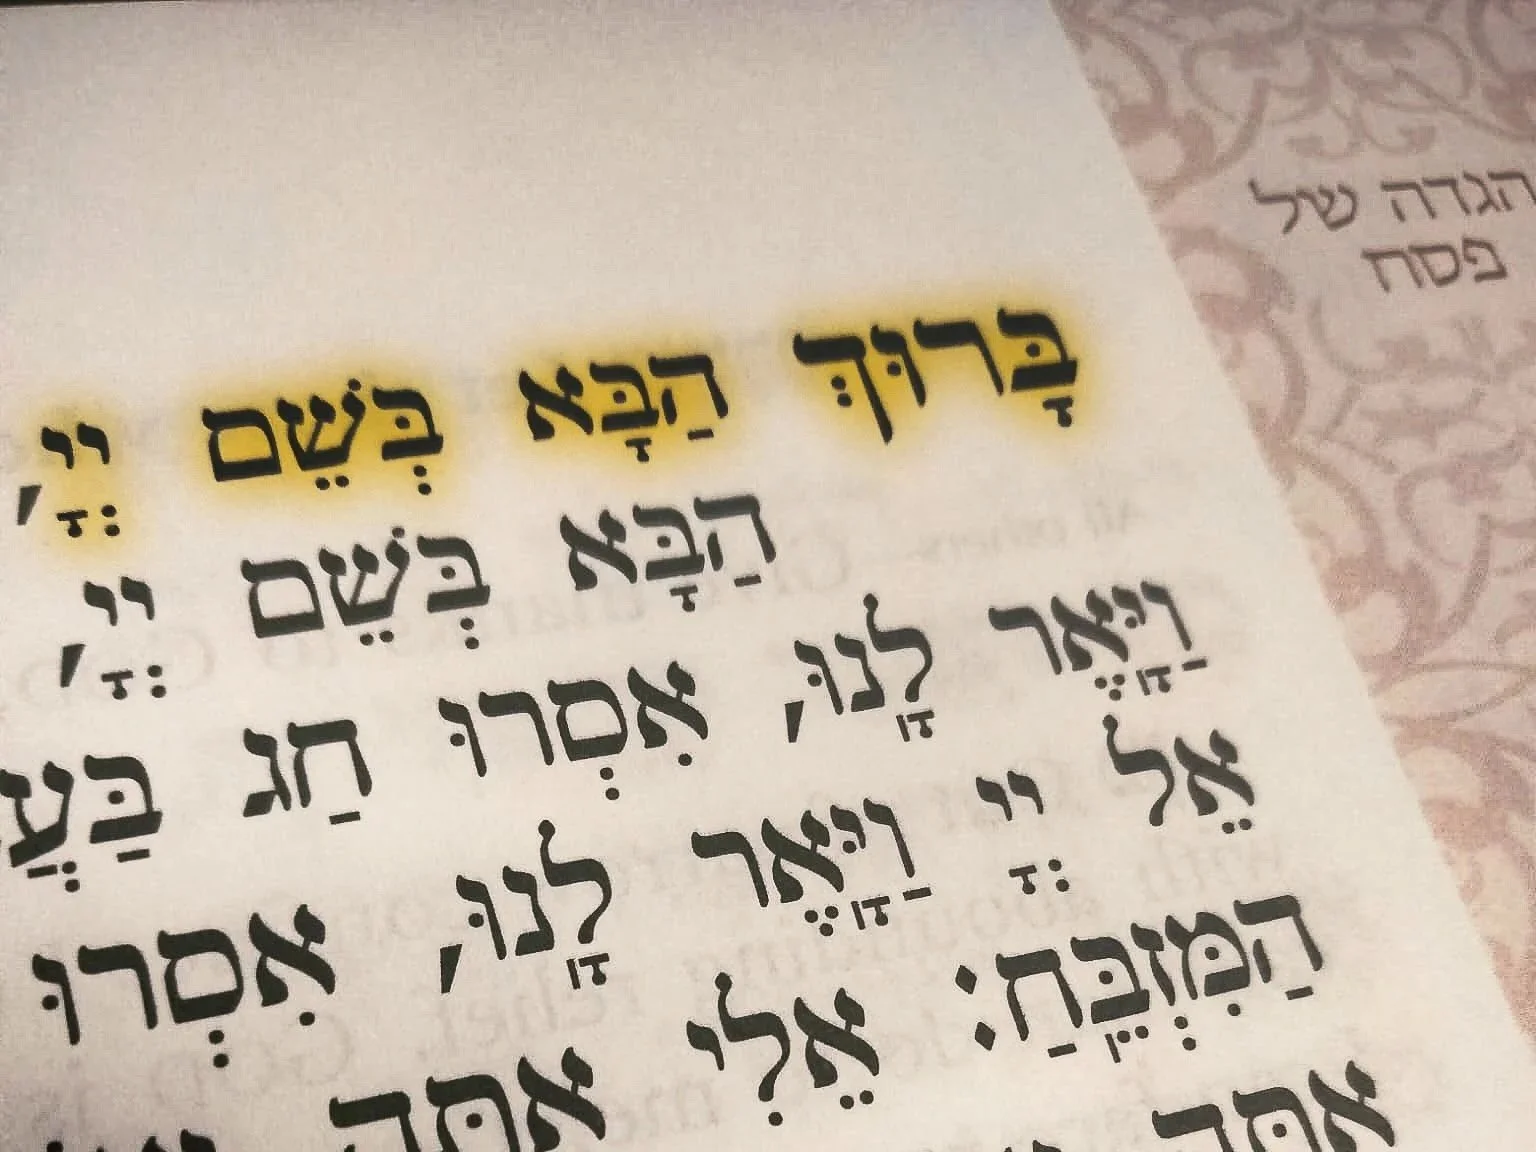 הגדה של
פסח
בָּרוּךְ הַבָּא בְּשֵׁם יְיָ,
הַבָּא בְּשֵׁם יְיָ,
וַיָּאֶר לָנוּ, אִסְרוּ חַג
אֵל יְיָ וַיָּאֶר לָנוּ, אִסְרוּ
הַמִּזְבֵּחַ: אֵלִי